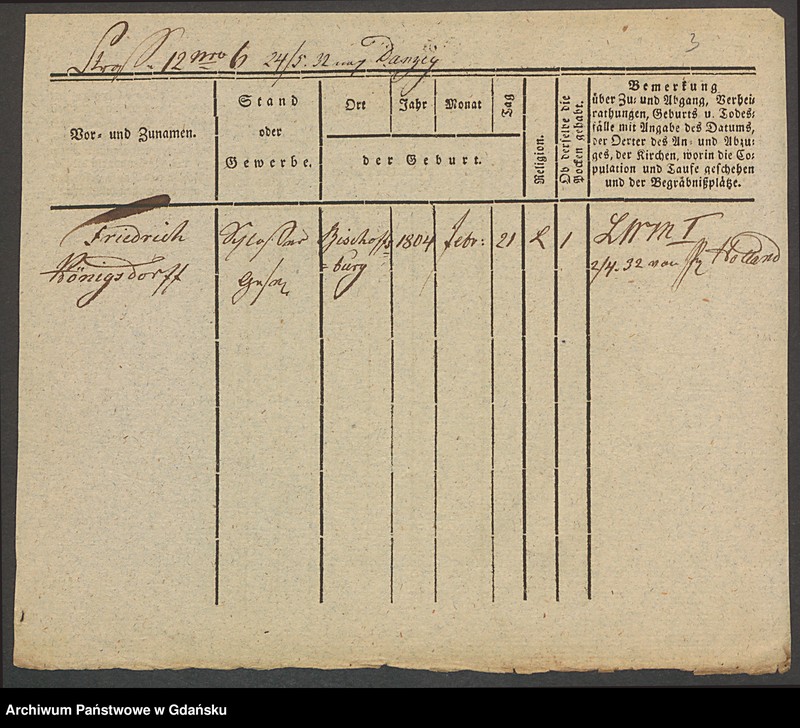 Straß 12 nro 6 24/5. 32 nach Danzig
3
Vor- und Zunamen.
Stand
oder
Gewerbe.
Ort
Jahr
Monat
Tag
der Geburt.
Religion.
Ob derselbe die
Pocken gehabt.
Bemerkung
über Zu- und Abgang, Verhei-
rathungen, Geburts u. Todes-
fälle mit Angabe des Datums,
der Oerter des An- und Abzu-
ges, der Kirchen, worin die Co-
pulation und Taufe geschehen
und der Begräbnißplätze.
Friedrich
Königsdorff
Schlosser
Gesell
Bischoffs
=burg
1804
Febr:
21
L
1
2/4. 32 von Pr Holland
Archiwum Państwowe w Gdańsku